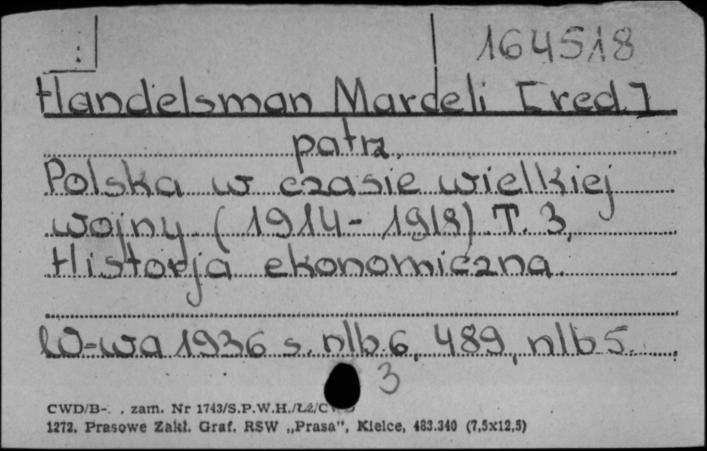 164518
Handelsman Mardeli [red.]
patrz
Polska w czasie wielkiej
wojny (1914-1918) T. 3,
Historja ekonomiczna.
W-wa 1936 s. nlb 6, 489, nlb 5.
3
CWD/B-. , zam. Nr 1743/S.P.W.H./
1272. Prasowe Zakł. Graf. RSW „Prasa", Kielce, 483.340 (7,5x12,5)